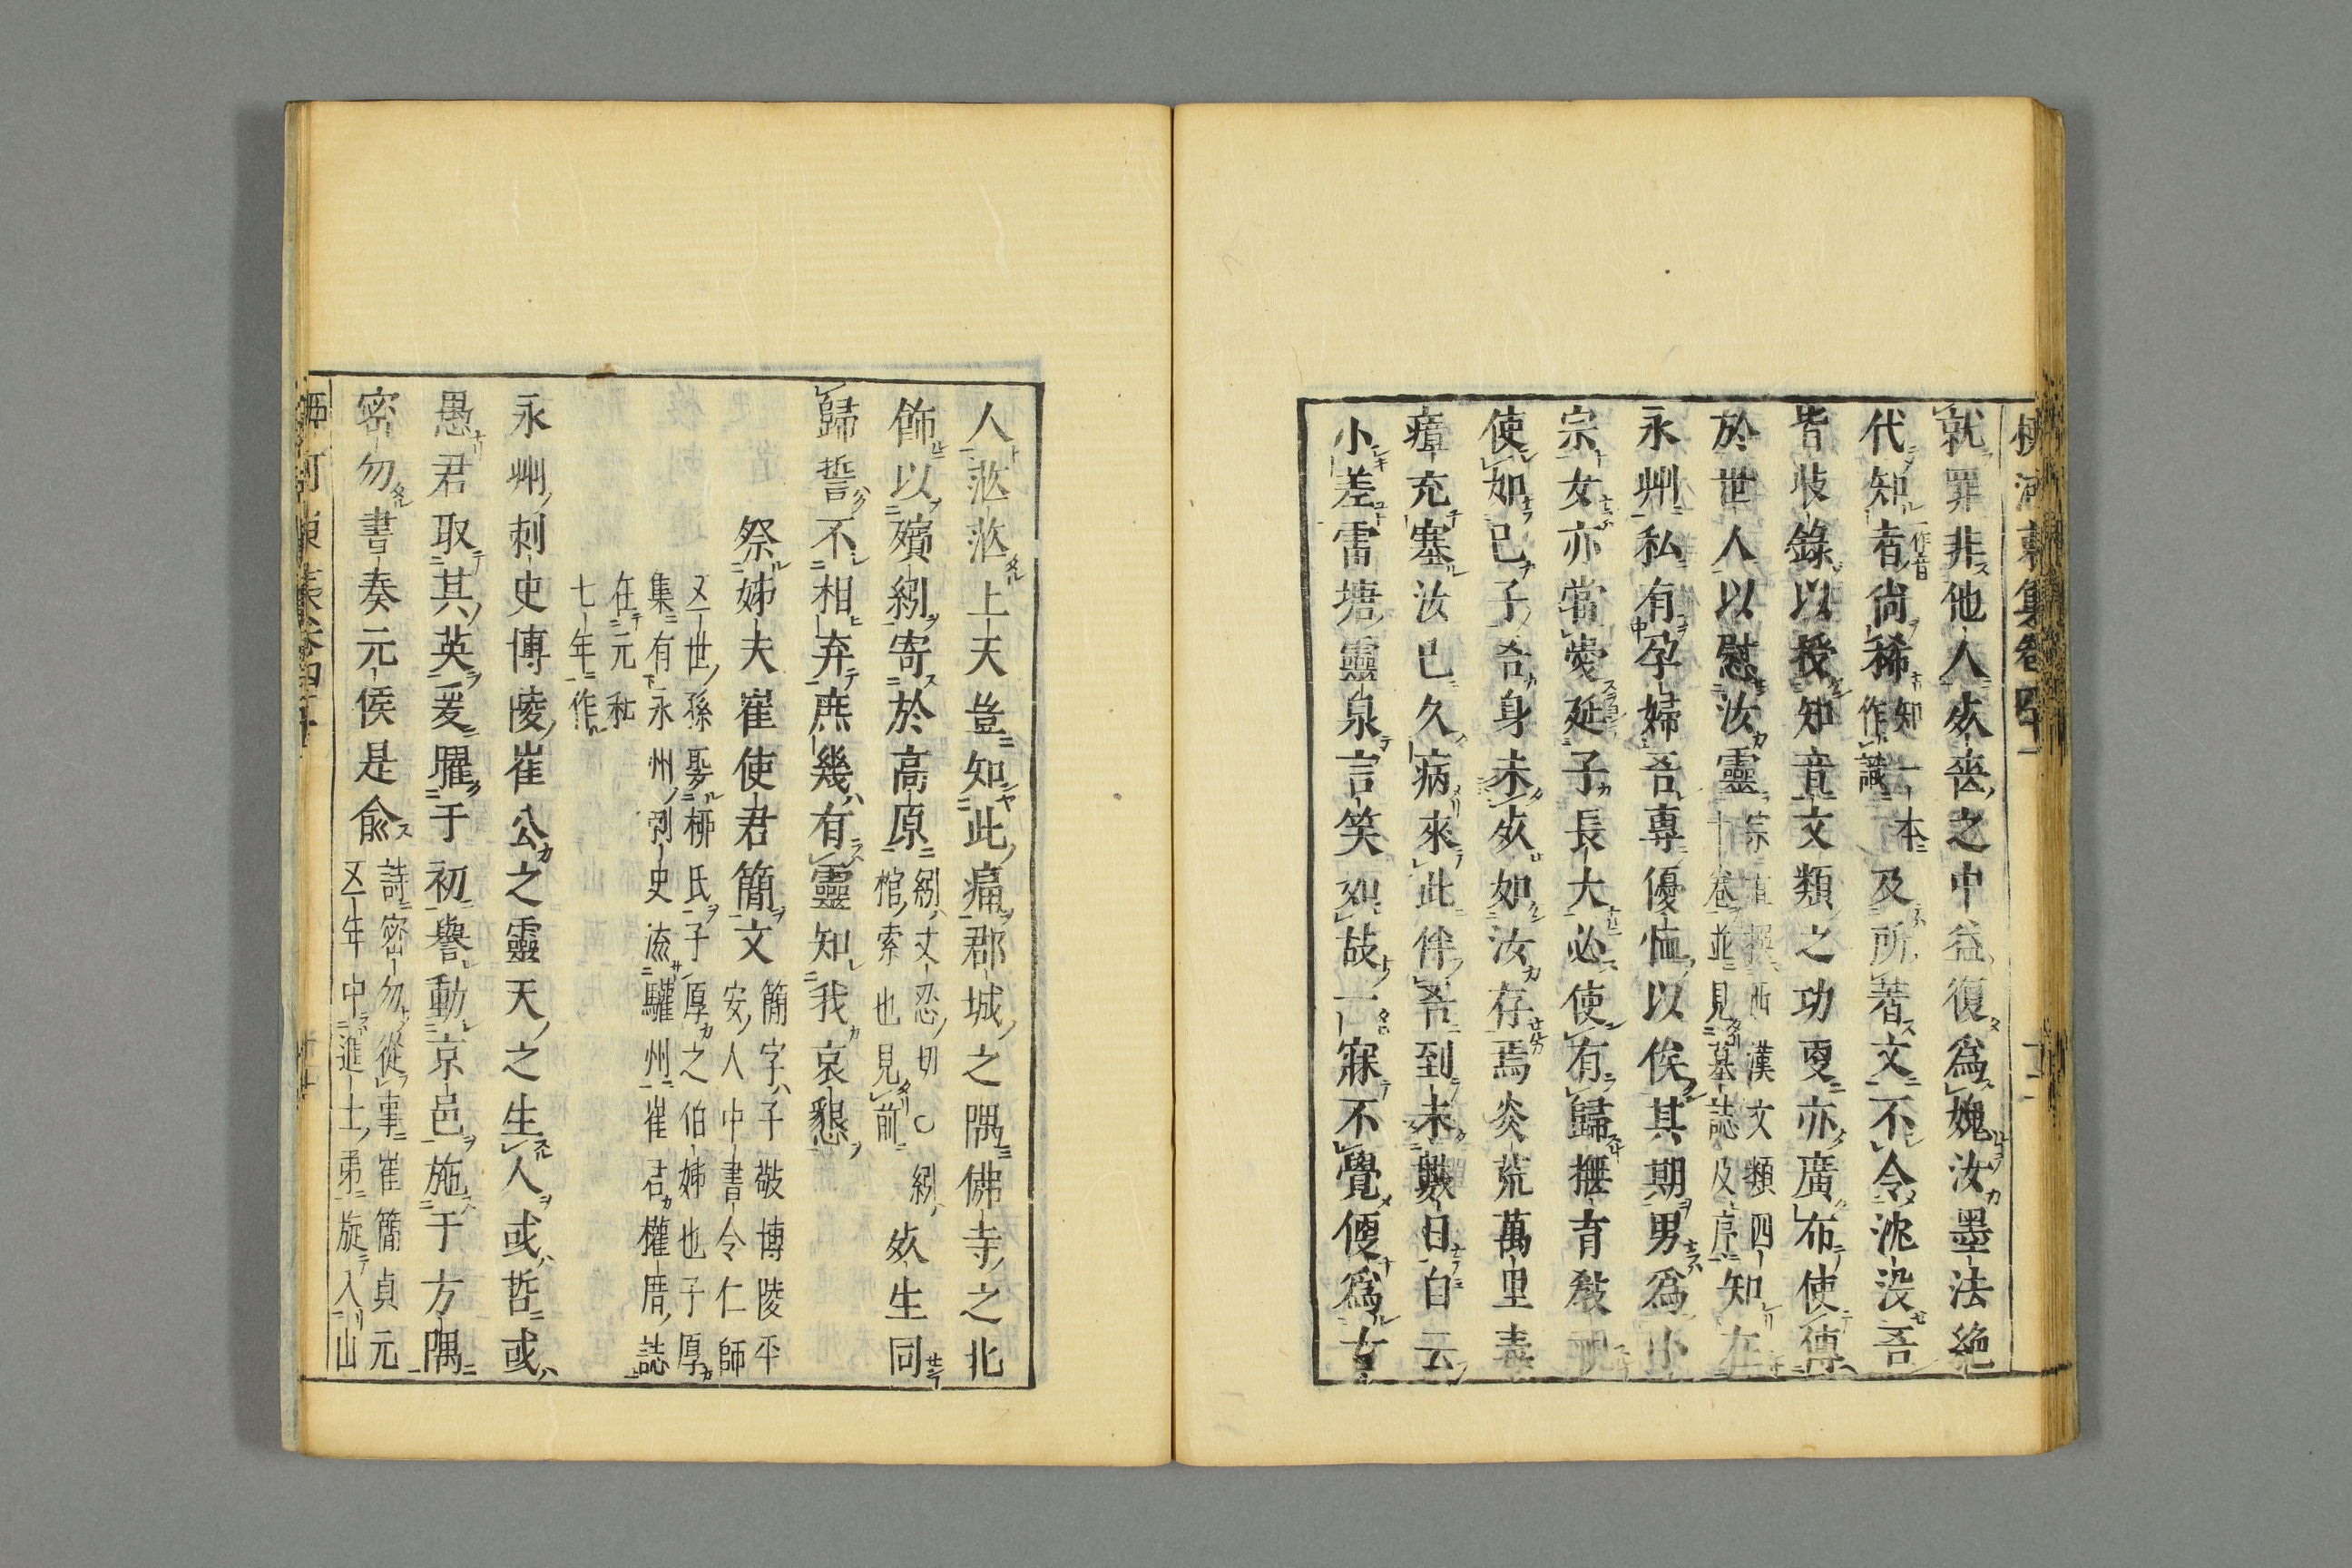 就罪非他人死喪之中益復爲媿汝墨法絶
代知者一作音尚稀知一本作識及所著文不令沈没吾
皆收錄以授知音文類之功更亦廣布使傳
於世人以慰汝靈宗直撰西漢文類四十卷並見墓誌及序知在
永州私有孕婦吾專優恤以俟其期男爲小
宗女亦當愛延子長大必使有歸撫育敎
使如己子吾身未死如汝存焉炎荒萬里毒
瘴充塞汝已久病來此伴吾到未數日自云
小差雷塘靈泉言笑如故一寐不覺便爲古
人茫茫上天豈知此痛郡城之隅佛寺之北
飾以殯紖寄於高原紖丈忍切○紖棺索也見前死生同
歸誓不相弃庶幾有靈知我哀懇
祭姊夫崔使君簡文簡字子敬博陵平安人中書令仁師
五世孫娶柳氏子厚之伯姊也子厚
集有永州刺史流驩州崔君權厝誌
在元和
七年作
永州刺史博陵崔公之靈天之生人或哲或
愚君取其英爰躍于初譽動京邑施于方隅
密勿書奏元侯是兪詩密勿從事崔簡貞元五年中進士弟旋入山
柳河東集卷四十一